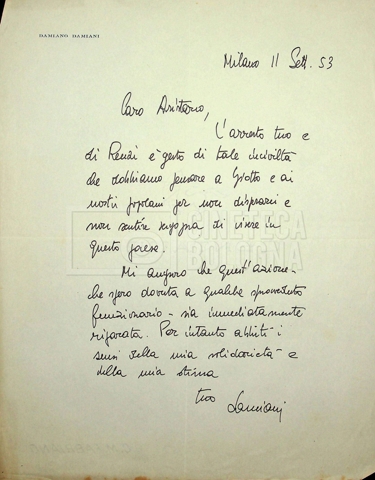 DAMIANO DAMIANI
Milano 11 Sett. 53
Caro Aristarco,
L'arresto tuo e
di Renzi è gesto di tale inciviltà
che dobbiamo pensare a Giotto e ai
nostri popolani per non disperarci e
non sentire vergogna di vivere in
questo paese.
CINETECA
BOLOGNA
Mi auguro che quest'azione -
che spero dovuta a qualche sprovveduto
funzionario - sia immediatamente
riparata. Per intanto abbiti i
sensi della mia solidarietà e
della mia stima
tuo Damiani